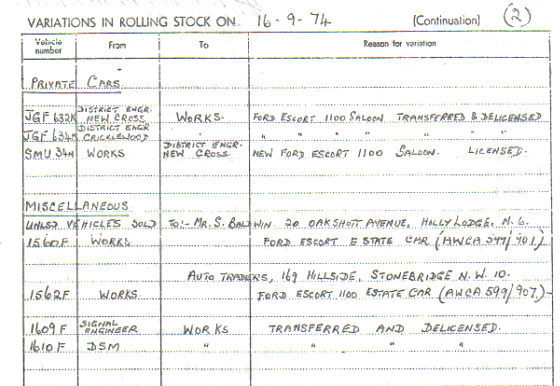 VARIATIONS IN ROLLING STOCK ON 16-9-74 (Continuation) (2)
Vehicle number From To Reason for variation
PRIVATE CARS
JGF 632K DISTRICT ENGR. NEW CROSS WORKS. FORD ESCORT 1100 SALOON TRANSFERRED & DELICENSED
JGF 634K DISTRICT ENGR CRICKLEWOOD " " " " " " "
SMU 34N WORKS DISTRICT ENGR. NEW CROSS. NEW FORD ESCORT 1100 SALOON. LICENSED.
MISCELLANEOUS
UNLSD VEHICLES SOLD TO:- MR. S. BALDWIN 20 OAKSHOTT AVENUE, HOLLY LODGE, N. 6.
1560F WORKS FORD ESCORT ESTATE CAR (AWCA 599/901.)
AUTO TRADERS, 169 HILLSIDE, STONEBRIDGE N.W. 10.
1562F WORKS. FORD ESCORT 1100 ESTATE CAR (AWCA 599/907.)
1609F SIGNAL ENGINEER WORKS TRANSFERRED AND DELICENSED.
1610F DSM " " " "